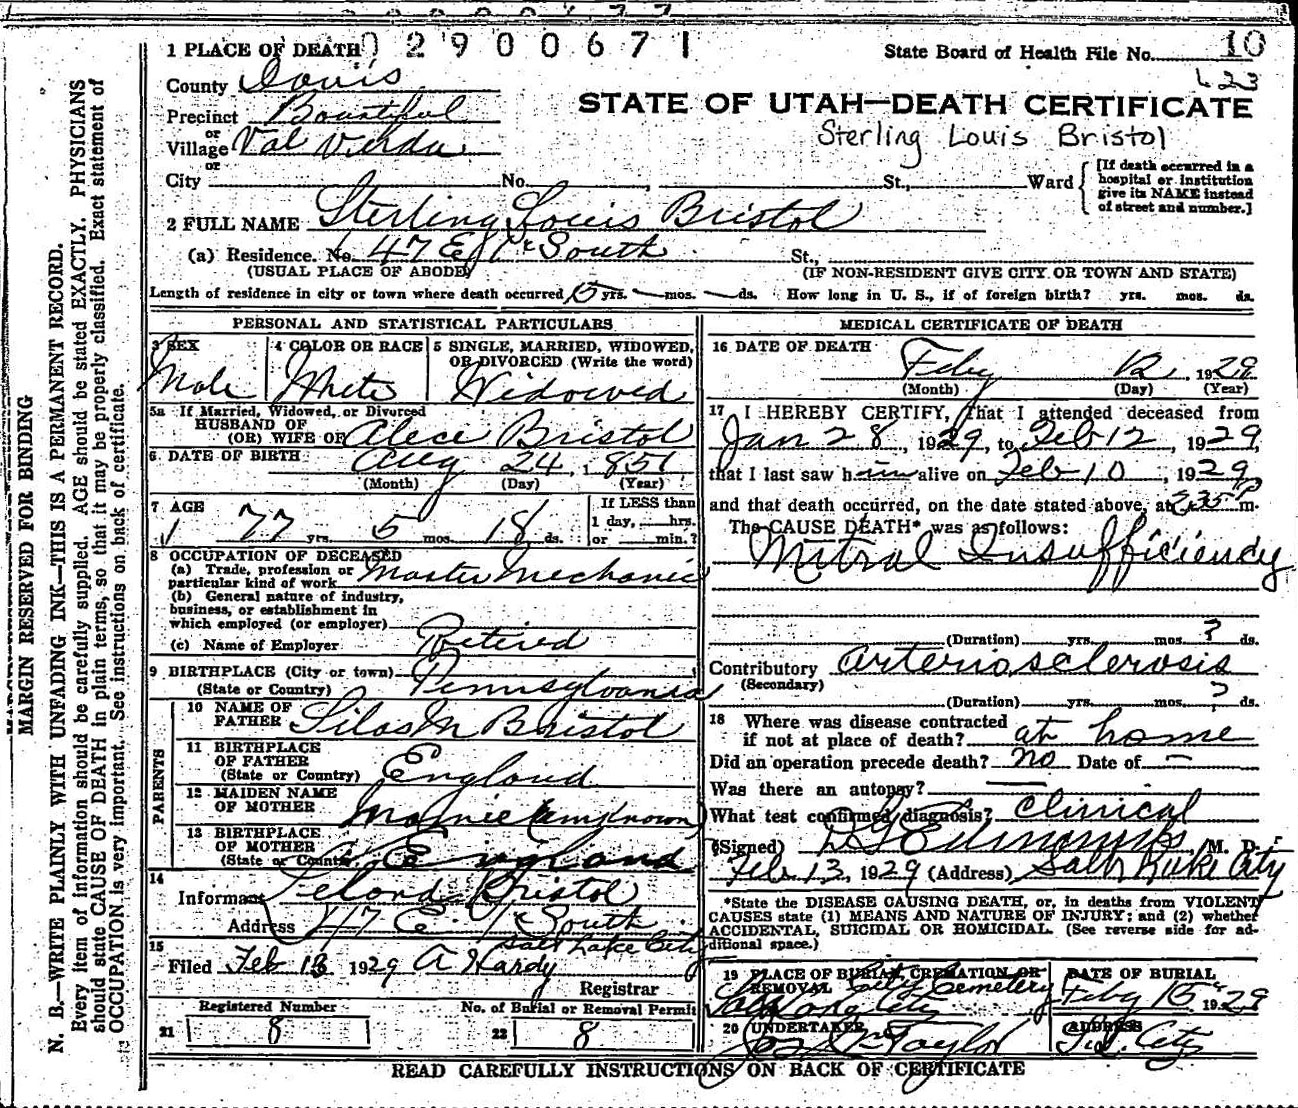 02900671
1 PLACE OF DEATH
State Board of Health File No. 10
County Davis
Precinct Bountiful
or
Village Val Verda
or
City No. , St., Ward
STATE OF UTAH—DEATH CERTIFICATE
Sterling Louis Bristol
[If death occurred in a
hospital or institution
give its NAME instead
of street and number.]
2 FULL NAME Sterling Louis Bristol
(a) Residence. No. 47 E South St.,
(USUAL PLACE OF ABODE) (IF NON-RESIDENT GIVE CITY OR TOWN AND STATE)
Length of residence in city or town where death occurred 15 yrs. — mos. — ds. How long in U. S., if of foreign birth? yrs. mos. ds.
PERSONAL AND STATISTICAL PARTICULARS
3 SEX
Male
4 COLOR OR RACE
White
5 SINGLE, MARRIED, WIDOWED,
OR DIVORCED (Write the word)
Widowed
5a If Married, Widowed, or Divorced
HUSBAND OF
(OR) WIFE OF Alece Bristol
6 DATE OF BIRTH Aug 24, 1851
(Month) (Day) (Year)
7 AGE
77 yrs. 5 mos. 18 ds.
If LESS than
1 day, hrs.
or min.?
8 OCCUPATION OF DECEASED
(a) Trade, profession or
particular kind of work Master Mechanic
(b) General nature of industry,
business, or establishment in
which employed (or employer)
(c) Name of Employer Retired
9 BIRTHPLACE (City or town)
(State or Country) Pennsylvania
PARENTS
10 NAME OF
FATHER Silas M Bristol
11 BIRTHPLACE
OF FATHER
(State or Country) England
12 MAIDEN NAME
OF MOTHER (unknown)
13 BIRTHPLACE
OF MOTHER
(State or Country) England
14
Informant Leland Bristol
Address 47 E. South
Salt Lake City
15
Filed Feb 13 1929 A Hardy
Registrar
Registered Number
21 8
No. of Burial or Removal Permit
22 8
MEDICAL CERTIFICATE OF DEATH
16 DATE OF DEATH
Feby 12, 1929
(Month) (Day) (Year)
17 I HEREBY CERTIFY, That I attended deceased from
Jan 28, 1929, to Feb 12, 1929,
that I last saw him alive on Feb 10, 1929
and that death occurred, on the date stated above, at 2:35 P m.
The CAUSE DEATH* was as follows:
Mitral Insufficiency
(Duration) yrs. mos. ? ds.
Contributory arteriosclerosis
(Secondary)
(Duration) yrs. mos. ? ds.
18 Where was disease contracted
if not at place of death? at home
Did an operation precede death? no Date of —
Was there an autopsy? —
What test confirmed diagnosis? Clinical
(Signed) Edmunds, M. D.
Feb 13, 1929 (Address) Salt Lake City
*State the DISEASE CAUSING DEATH, or, in deaths from VIOLENT
CAUSES state (1) MEANS AND NATURE OF INJURY; and (2) whether
ACCIDENTAL, SUICIDAL OR HOMICIDAL. (See reverse side for ad-
ditional space.)
19 PLACE OF BURIAL, CREMATION OR
REMOVAL City Cemetery
Salt Lake City
DATE OF BURIAL
Feby 15 1929
20 UNDERTAKER
Taylor
ADDRESS
City
READ CAREFULLY INSTRUCTIONS ON BACK OF CERTIFICATE
MARGIN RESERVED FOR BINDING
N. B.—WRITE PLAINLY WITH UNFADING INK—THIS IS A PERMANENT RECORD.
Every item of information should be carefully supplied. AGE should be stated EXACTLY. PHYSICIANS
should state CAUSE OF DEATH in plain terms, so that it may be properly classified. Exact statement of
OCCUPATION is very important. See instructions on back of certificate.